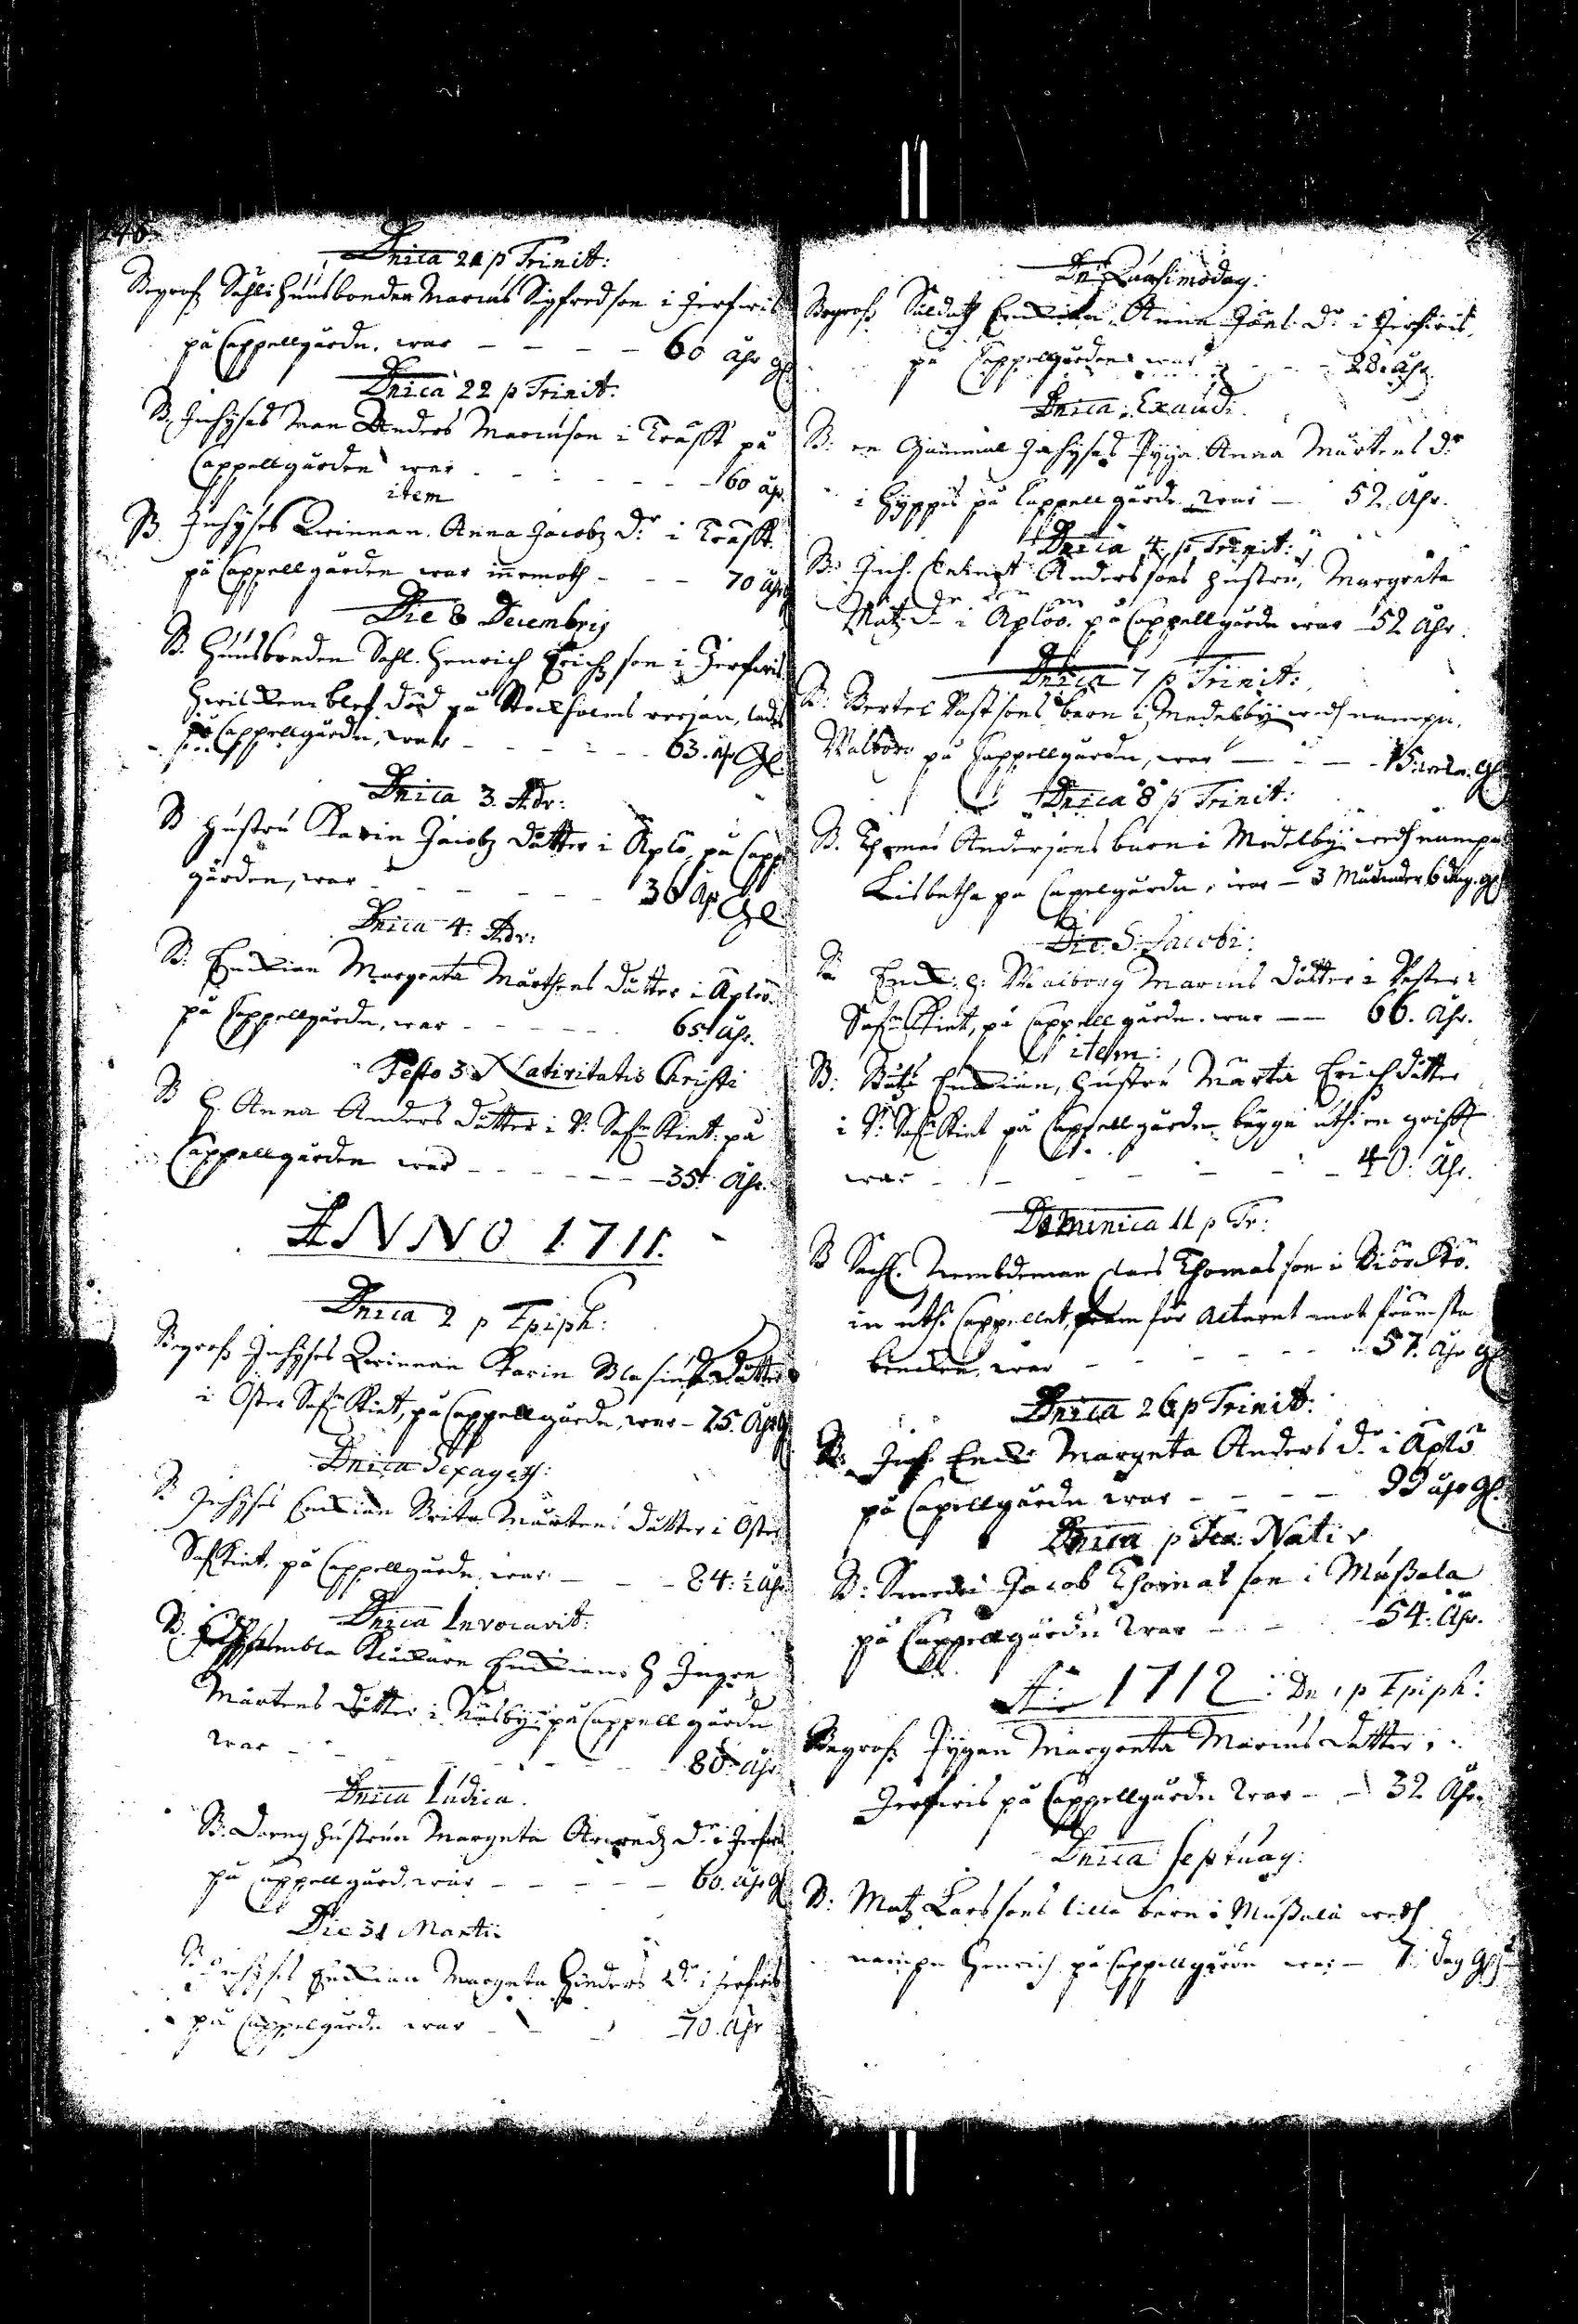 Dnica 21 p Trinit:
Begrofz Sahl: Huusbonden Marcus Sigfredson i Jerfwis
på Cappellgårdn, war - - - - 60 åhr gl
Dnica 22 p Trinit:
B. Inhyses man Anders Marcuson i Träsk på
Cappellgården war - - - - - 60 åhr
item
B. Inhyses Qwinnan Anna Jacobz Dr i Träsk
på Cappellgården war inemoth - - - 70 åhr
Die 8 Decembris
B. Huusbonden Sahl. Henrich Erichson i Jerfwis
hwilken blef död på Stockholms reesan, lades
på Cappellgårdn, war - - - - 63. åhr Gl.
Dnica 3. Adv:
B Hustru Karin Jacobz dätter i Äplö, på Capp
gården, war - - - - 36 åhr Gl
Dnica 4. Adv:
B. Enckian Margreta Mårthens dätter i Äplöö
på Cappellgårdn, war - - - - 65 åhr.
Festo 3 Nativitatis Christi
B H. Anna Anders dätter i V. Kiet på
Cappellgården war - - - - - 35 åhr.
ANNO 1711.
Dnica 2 p Epiph:
Begrofz Inhyses Qwinnan Karin Blasius dätter
i Öster Kiet, på Cappellgårdn, war - 75. åhr gl
Dnica Sexages:
B. Inhyses Enckian Brita Mårtens dätter i Öster
Kiet, på Cappellgårdn war - - - 84 ½ åhr
Dnica Invocavit:
B. Enckian H Ingre
Mårtens dätter i Näsby på Cappellgårdn
war - - - - - 80 åhr
Dnica Iudica.
B. hustrun Margreta Dr i Jerfwis
på Cappellgård. war - - - - - 60. åhr gl
Die 31 Martii
B inhyses Enckian Margreta Hinders Dr i Jerfwis
på Cappelgårdn war - - - 70. åhr
Dn: Quasimodog:
Begrofz Enckia Anna Jöns Dr i Jerfwis,
på Cappellgården war - - - 28. åhr.
Dnica Exaudi.
B: en Gammal Inhyses Pyga Anna Mårtens dr
i Hyppis på Cappellgårdn war - 52. åhr.
Dnica 4 p Trinit:
B: Inh. Anderssons hustru, Margreta
Matz Dr i Äplöö. på Cappellgårdn war - 52 åhr.
Dnica 7 p Trinit:
B: Bertel barn i Medelby widh nampn.
Walborg på Cappellgårdn, war - - - 15 gl
Dnica 8 p Trinit:
B. Thomas Anderssons barn i Medelby widh nampn
Lisbetha på Capelgårdn, war - 3 Månader 6 dag. gl
Die S. Jacobi:
B. Enck. H: Walborg Marcus dätter i Vester
Kiet, på Cappellgårdn war - - 66. åhr.
item:
B: Enckian, hustru Märta Erichdätter
i V. Kiet på Cappellgårdn bägge uthi en grift
war - - - - - - 40. åhr.
Dominica 11 p Tr:
B Sahl. Nembdeman Thomasson i Biörckö.
in uthi Cappellet, fram för Altaret mot främsta
bencken war - - - - - - 57. åhr gl
Dnica 26 p Trinit:
B: Inh. Enck: Margreta Anders dr i Äplö
på Capellgårdn war - - - - 99 åhr gl.
Dnica p Fer: Nativ
B: Jacob Thomasson i Mußala
på Cappellgårdn war - - - 54. åhr.
Ao 1712: Dn 1 p Epiph:
Begrofz Pygan Margreta Marcus dätter i
Jerfwis på Cappellgårdn war - - 32 åhr.
Dnica Septuag:
B: Matz Larssons lilla barn i Mußala widh
nampn Henrich på Cappellgårdn war - 7. dag gl